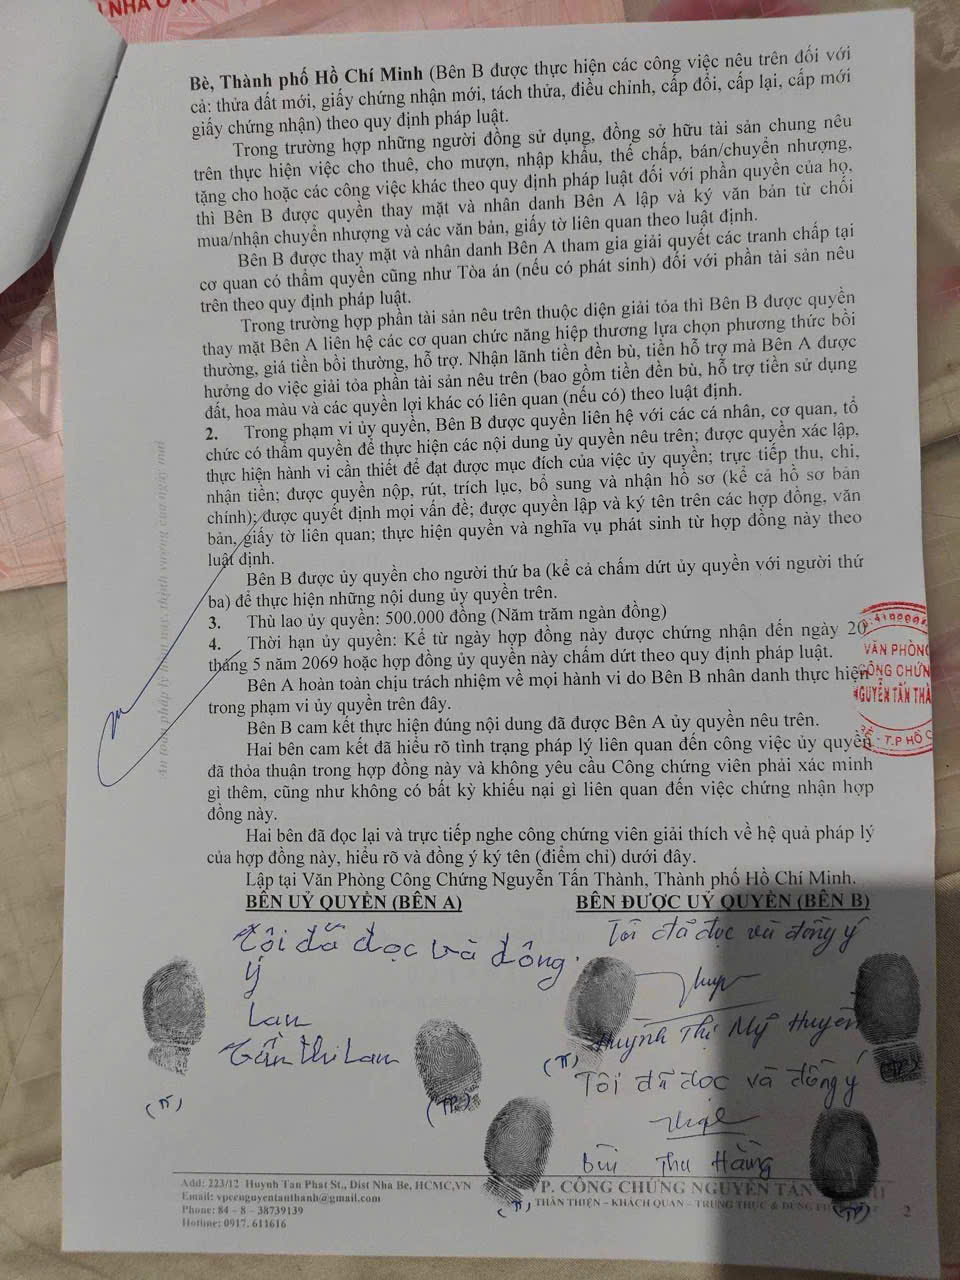 NHÀ Ở V
Bè, Thành phố Hồ Chí Minh (Bên B được thực hiện các công việc nêu trên đối với
cả: thửa đất mới, giấy chứng nhận mới, tách thửa, điều chỉnh, cấp đổi, cấp lại, cấp mới
giấy chứng nhận) theo quy định pháp luật.
Trong trường hợp những người đồng sử dụng, đồng sở hữu tài sản chung nêu
trên thực hiện việc cho thuê, cho mượn, nhập khẩu, thế chấp, bán/chuyển nhượng,
tặng cho hoặc các công việc khác theo quy định pháp luật đối với phần quyền của họ,
thì Bên B được quyền thay mặt và nhân danh Bên A lập và ký văn bản từ chối
mua/nhận chuyển nhượng và các văn bản, giấy tờ liên quan theo luật định.
Bên B được thay mặt và nhân danh Bên A tham gia giải quyết các tranh chấp tại
cơ quan có thẩm quyền cũng như Tòa án (nếu có phát sinh) đối với phần tài sản nêu
trên theo quy định pháp luật.
Trong trường hợp phần tài sản nêu trên thuộc diện giải tỏa thì Bên B được quyền
thay mặt Bên A liên hệ các cơ quan chức năng hiệp thương lựa chọn phương thức bồi
thường, giá tiền bồi thường, hỗ trợ. Nhận lãnh tiền đền bù, tiền hỗ trợ mà Bên A được
hưởng do việc giải tỏa phần tài sản nêu trên (bao gồm tiền đền bù, hỗ trợ tiền sử dụng
đất, hoa màu và các quyền lợi khác có liên quan (nếu có) theo luật định.
2. Trong phạm vi ủy quyền, Bên B được quyền liên hệ với các cá nhân, cơ quan, tổ
chức có thẩm quyền để thực hiện các nội dung ủy quyền nêu trên; được quyền xác lập,
thực hiện hành vi cần thiết để đạt được mục đích của việc ủy quyền; trực tiếp thu, chi,
nhận tiền; được quyền nộp, rút, trích lục, bổ sung và nhận hồ sơ (kể cả hồ sơ bản
chính); được quyết định mọi vấn đề; được quyền lập và ký tên trên các hợp đồng, văn
bản, giấy tờ liên quan; thực hiện quyền và nghĩa vụ phát sinh từ hợp đồng này theo
luật định.
Bên B được ủy quyền cho người thứ ba (kể cả chấm dứt ủy quyền với người thứ
ba) để thực hiện những nội dung ủy quyền trên.
3. Thù lao ủy quyền: 500.000 đồng (Năm trăm ngàn đồng)
4. Thời hạn ủy quyền: Kể từ ngày hợp đồng này được chứng nhận đến ngày 20
tháng 5 năm 2069 hoặc hợp đồng ủy quyền này chấm dứt theo quy định pháp luật.
Bên A hoàn toàn chịu trách nhiệm về mọi hành vi do Bên B nhân danh thực hiện
trong phạm vi ủy quyền trên đây.
Bên B cam kết thực hiện đúng nội dung đã được Bên A ủy quyền nêu trên.
Hai bên cam kết đã hiểu rõ tình trạng pháp lý liên quan đến công việc ủy quyền
đã thỏa thuận trong hợp đồng này và không yêu cầu Công chứng viên phải xác minh
gì thêm, cũng như không có bất kỳ khiếu nại gì liên quan đến việc chứng nhận hợp
đồng này.
Hai bên đã đọc lại và trực tiếp nghe công chứng viên giải thích về hệ quả pháp lý
của hợp đồng này, hiểu rõ và đồng ý ký tên (điểm chỉ) dưới đây.
Lập tại Văn Phòng Công Chứng Nguyễn Tấn Thành, Thành phố Hồ Chí Minh.
VĂN PHÒNG
CÔNG CHỨN
NGUYỄN TẤN THÀ
T.P HỒ C
BÊN UỶ QUYỀN (BÊN A)
Tôi đã đọc và đồng
ý
Lan
Trần Thi Lan
(T)
(TP)
BÊN ĐƯỢC UỶ QUYỀN (BÊN B)
Tôi đã đọc và đồng ý
Huỳnh Thị Mỹ Huyền
(T)
(TP)
Tôi đã đọc và đồng ý
Bùi Thu Hằng
(T)
(TP)
Add: 223/12 Huynh Tan Phat St., Dist Nha Be, HCMC,VN
Email: vpccnguyentanthanh@gmail.com
Phone: 84 - 8 - 38739139
Hotline: 0917. 611616
VP. CÔNG CHỨNG NGUYỄN TẤN
THÂN THIỆN – KHÁCH QUAN – TRUNG THỰC & ĐÚNG
2